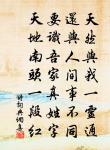 天然與我一靈通
還與人間事不同
要識吾家真姓字
天地南頭一段紅